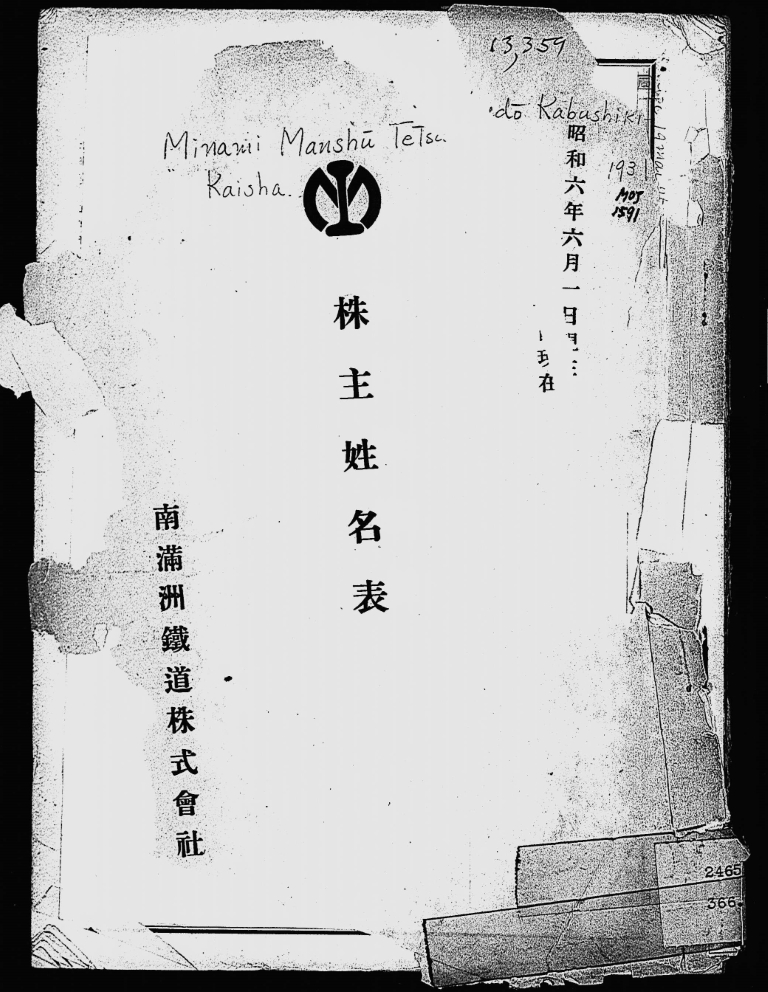 13,359
Minami Manshū Tetsu
dō Kabushiki
Kaisha.
1931
MOJ
1591
昭和六年六月一日現在
株主姓名表
南滿洲鐵道株式會社
2465
366